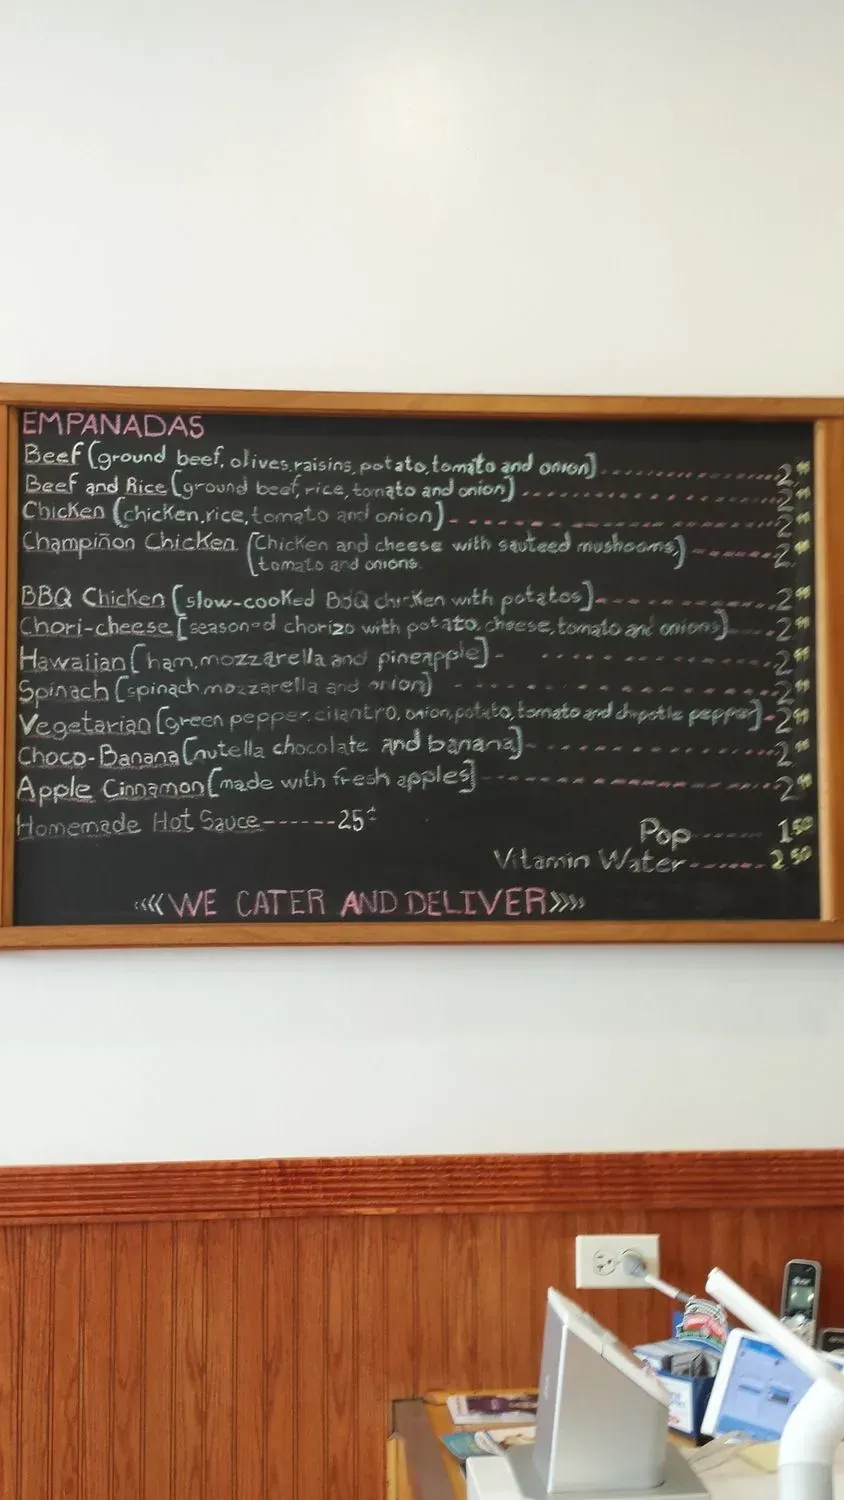 EMPANADAS
Beef (ground beef, olives, raisins, potato, tomato and onion) 2 99
Beef and Rice (ground beef, rice, tomato and onion) 2 99
Chicken (chicken, rice, tomato and onion) 2 99
Champiñon Chicken (Chicken and cheese with sauteed mushooms,) 2 99
tomato and onions.
BBQ Chicken [slow-cooked BBQ chicken with potatos] 2 99
Chori-cheese [seasoned chorizo with potato, cheese, tomato and onions] 2 99
Hawaiian [ham, mozzarella and pineapple] 2 99
Spinach [spinach mozzarella and onion] 2 99
Vegetarian [green pepper, cilantro, onion, potato, tomato and chipotle pepper] 2 99
Choco-Banana [nutella chocolate and banana] 2 99
Apple Cinnamon [made with fresh apples] 2 99
Homemade Hot Sauce------25¢
Pop 1 50
Vitamin Water 2 50
<<<WE CATER AND DELIVER>>>>